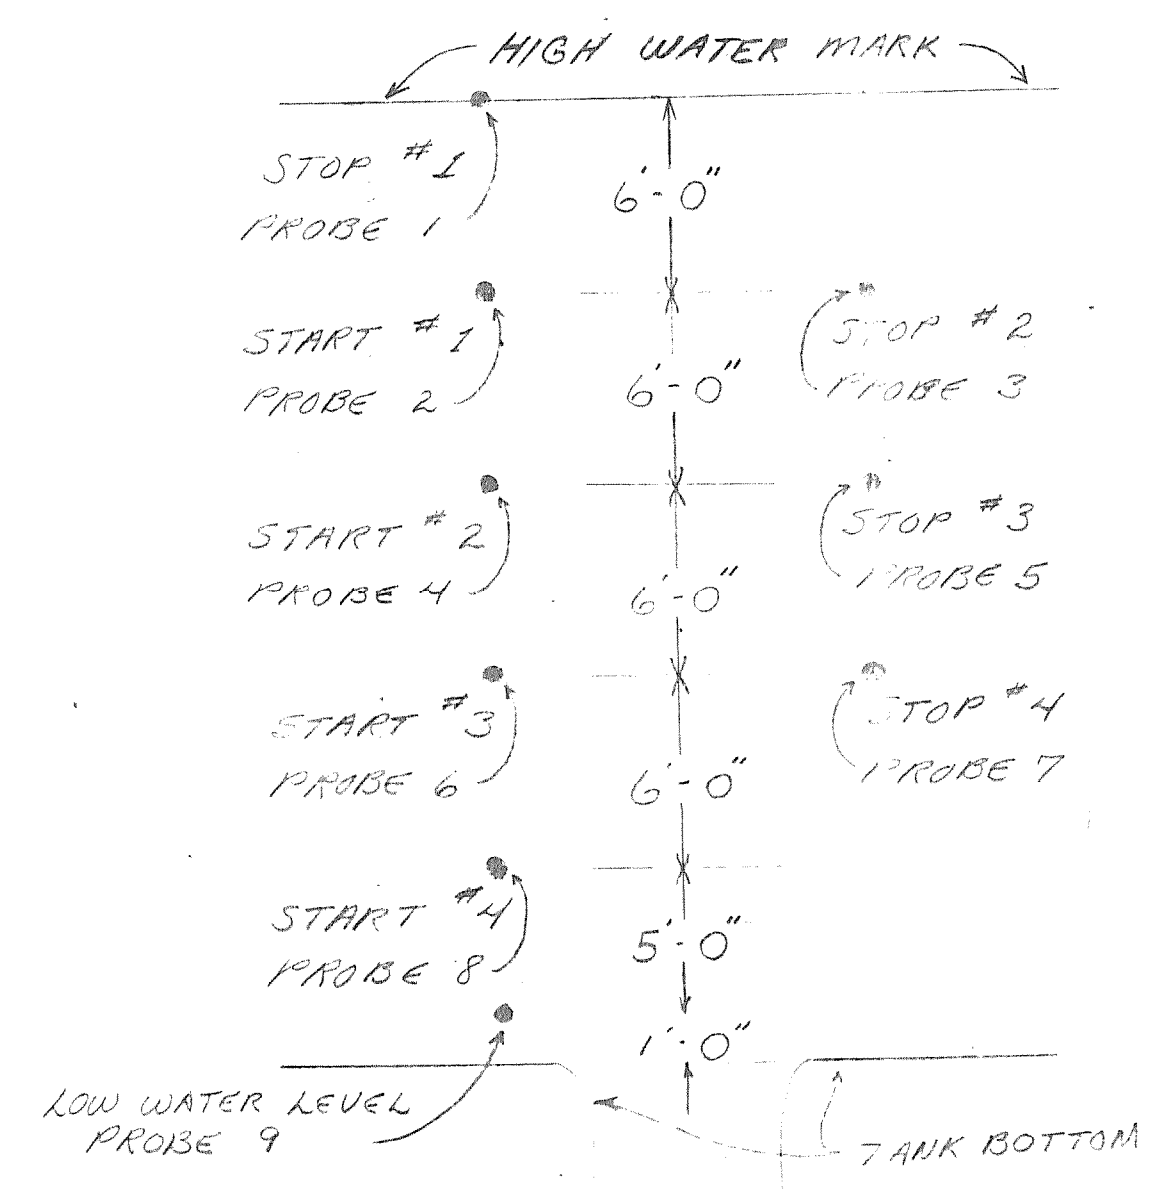 HIGH WATER MARK
STOP #1
PROBE 1
6'-0"
START #1
PROBE 2
STOP #2
PROBE 3
6'-0"
START #2
PROBE 4
STOP #3
PROBE 5
6'-0"
START #3
PROBE 6
STOP #4
PROBE 7
6'-0"
START #4
PROBE 8
5'-0"
1'-0"
LOW WATER LEVEL
PROBE 9
TANK BOTTOM